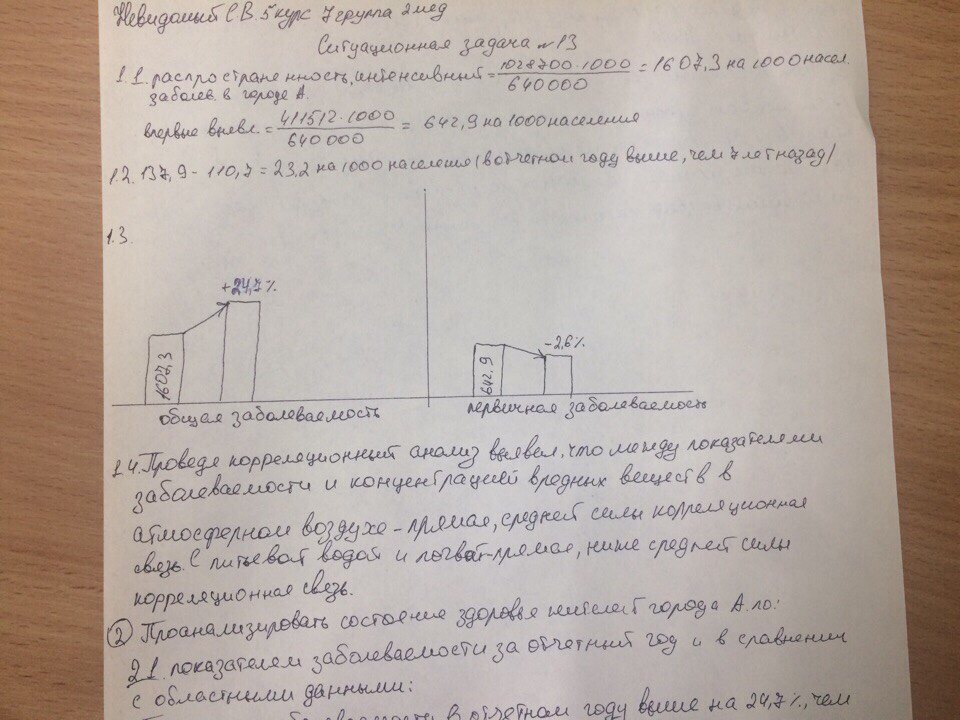 Невидомый С.В. 5 курс 7 группа 2 мед
Ситуационная задача №13
1.1. распространенность, интенсивный = 1028700·1000 / 640000 = 1607,3 на 1000 насел.
заболев. в городе А.
впервые выявл. = 411512·1000 / 640000 = 642,9 на 1000 населения
1.2. 137,9 - 110,7 = 23,2 на 1000 населения (в отчетном году выше, чем 7 лет назад)
1.3.
+24,7%
-2,6%
1607,3
642,9
общая заболеваемость
первичная заболеваемость
1.4. Проведя корреляционный анализ выявил, что между показателями
заболеваемости и концентрацией вредних веществ в
атмосферном воздухе - прямая, средней силы корреляционная
связь. С питьевой водой и почвой-прямая, ниже средней силы
корреляционная связь.
2 Проанализировать состояние здоровье жителей города А. по:
2.1. показателем заболеваемости за отчетный год и в сравнении
с областными данными:
в отчетном году выше на 24,7%, чем